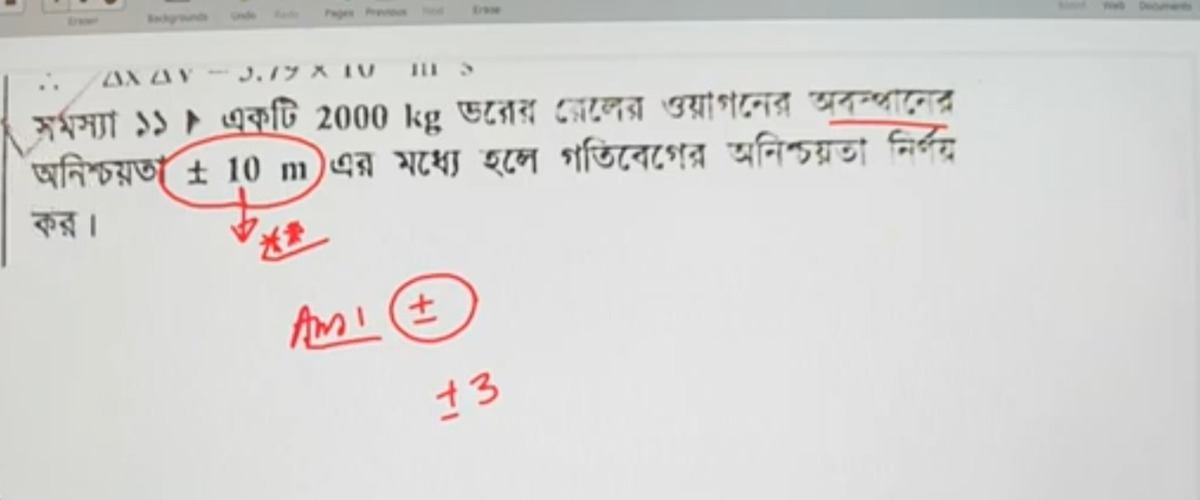 Eraser Backgrounds Undo Redo Pages Previous Next Erase Web Documents
সমস্যা ১১ ▶ একটি 2000 kg ভরের রেলের ওয়াগনের অবস্থানের
অনিশ্চয়তা ± 10 m এর মধ্যে হলে গতিবেগের অনিশ্চয়তা নির্ণয়
কর।
**
Ans। ±
± 3